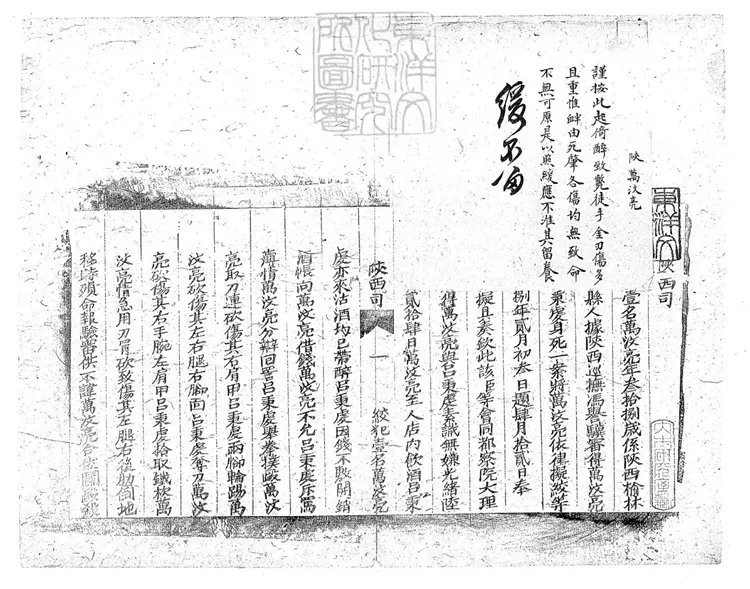 東洋文
化研究
所圖書
陝西司
陝 萬汶亮
謹按此起倚醉致斃徒手金刃傷多
且重惟衅由死肇各傷均無致命
不無可原是以照緩應不准其留養
緩不留
壹名萬汶亮年叁拾捌歲係陝西榆林
縣人據陝西巡撫馮譽驥審得萬汶亮
秉慶身死一案將萬汶亮依律擬絞等
捌年貳月初叁日題肆月拾貳日奉
擬具奏欽此該臣等會同都察院大理
得萬汶亮與呂秉慶素識無嫌光緒陸
貳拾肆日萬汶亮至人店內飲酒呂秉
絞犯壹名萬汶亮
陝西司 一
慶亦來沽酒均已帶醉呂秉慶因錢不敷開銷
酒帳向萬汶亮借錢萬汶亮不允呂秉慶斥罵
薄情萬汶亮分辯回詈呂秉慶舉拳撲毆萬汶
亮取刀連砍傷其右肩甲呂秉慶兩腳輪踢萬
汶亮砍傷其左右腿右腳面呂秉慶奪刀萬汶
亮砍傷其右手腕左肩甲呂秉慶拾取鐵杴萬
汶亮情急用刀冒砍致傷其左腿右後肋倒地
移時殞命報驗審供不諱萬汶亮合依